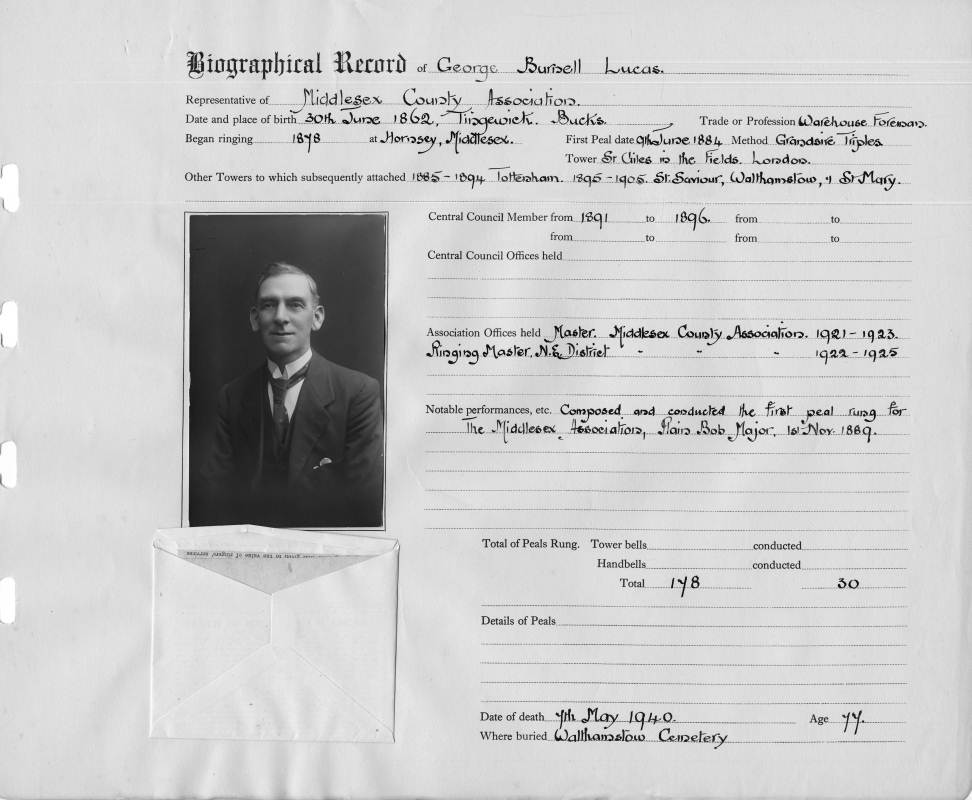 Biographical Record of George Burnell Lucas.
Representative of Middlesex County Association.
Date and place of birth 30th June 1862, Tingewick. Bucks. Trade or Profession Warehouse Foreman.
Began ringing 1878 at Hornsey, Middlesex. First Peal date 9th June 1884 Method Grandsire Triples
Tower St Giles in the Fields. London.
Other Towers to which subsequently attached 1885-1894 Tottenham. 1895-1905. St. Saviour, Walthamstow, & St Mary.
Central Council Member from 1891 to 1896. from to
from to from to
Central Council Offices held
Association Offices held Master. Middlesex County Association. 1921-1923.
Ringing Master. N.E. District " " " 1922-1925
Notable performances, etc. Composed and conducted the first peal rung for
The Middlesex Association, Plain Bob Major. 1st Nov. 1889.
Total of Peals Rung. Tower bells conducted
Handbells conducted
Total 178 30
given to the value of ringers' services
Details of Peals
Date of death 7th May 1940. Age 77.
Where buried Walthamstow Cemetery